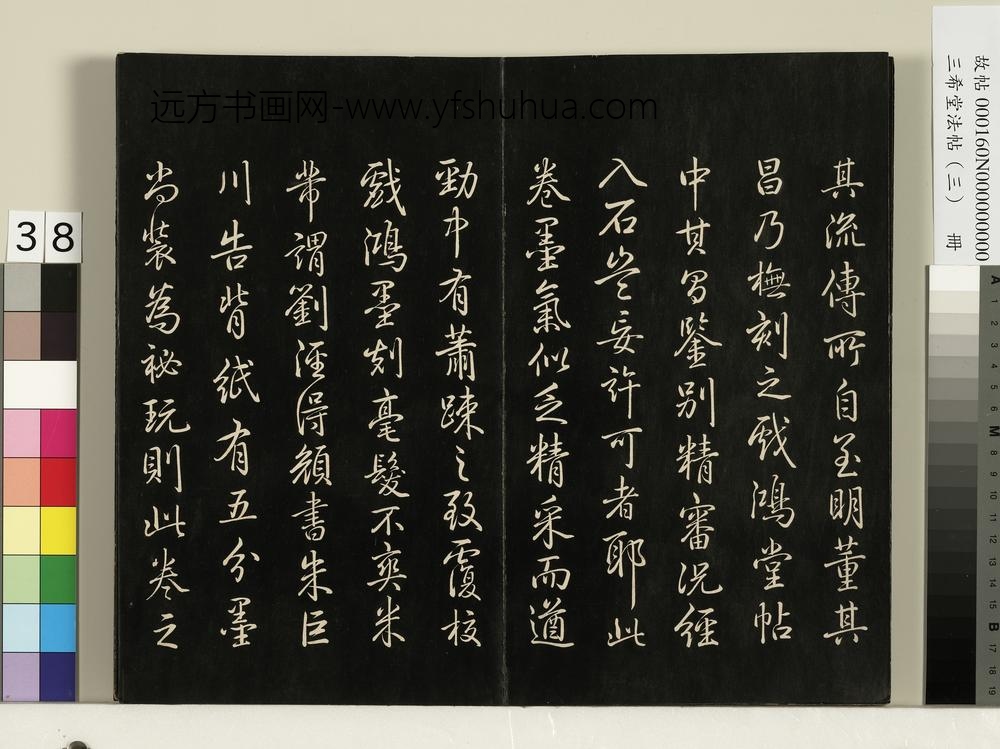 其流傳所自至明董其
昌乃橅刻之戲鴻堂帖
中其昌鑒別精審況經
入石豈妄許可者耶此
卷墨氣似乏精采而遒
勁中有蕭疎之致覆校
戲鴻墨刻毫髮不爽米
芾謂劉涇得顏書朱巨
川告背紙有五分墨
尚裝為祕玩則此卷之
远方书画网-www.yfshuhua.com
故帖 000160N000000000
三希堂法帖（三） 冊
38
A
1
2
3
4
5
6
M
8
9
10
11
12
13
14
15
B
17
18
19